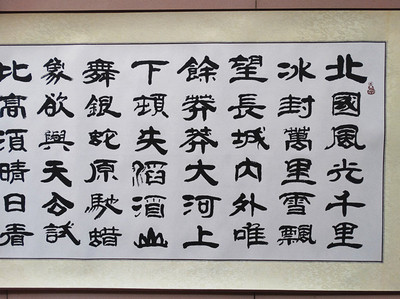 北國風光千里
冰封萬里雪飄
望長城內外唯
餘莽莽大河上
下頓失滔滔山
舞銀蛇原馳蜡
象欲與天公試
比高須晴日看